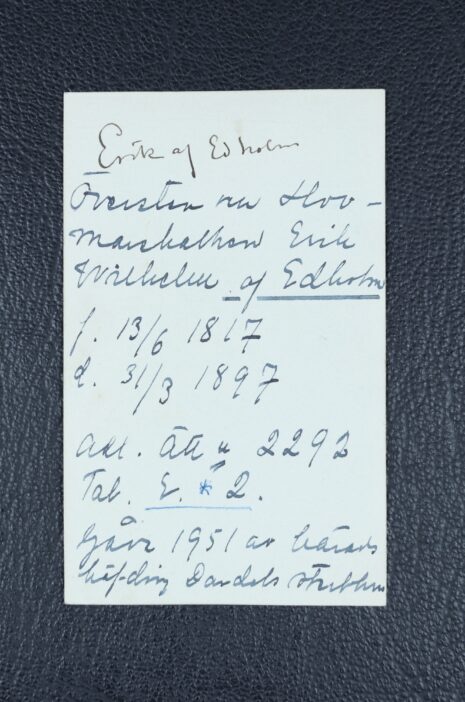 Erik af Edholm
Översten m Hov-
marskalken Erik
Wilhelm af Edholm
f. 13/6 1817
d. 31/3 1897
adl. ätt n 2292
Tab. E. * 2.
Gåva 1951 av härads
höfding Dardels sterbhus